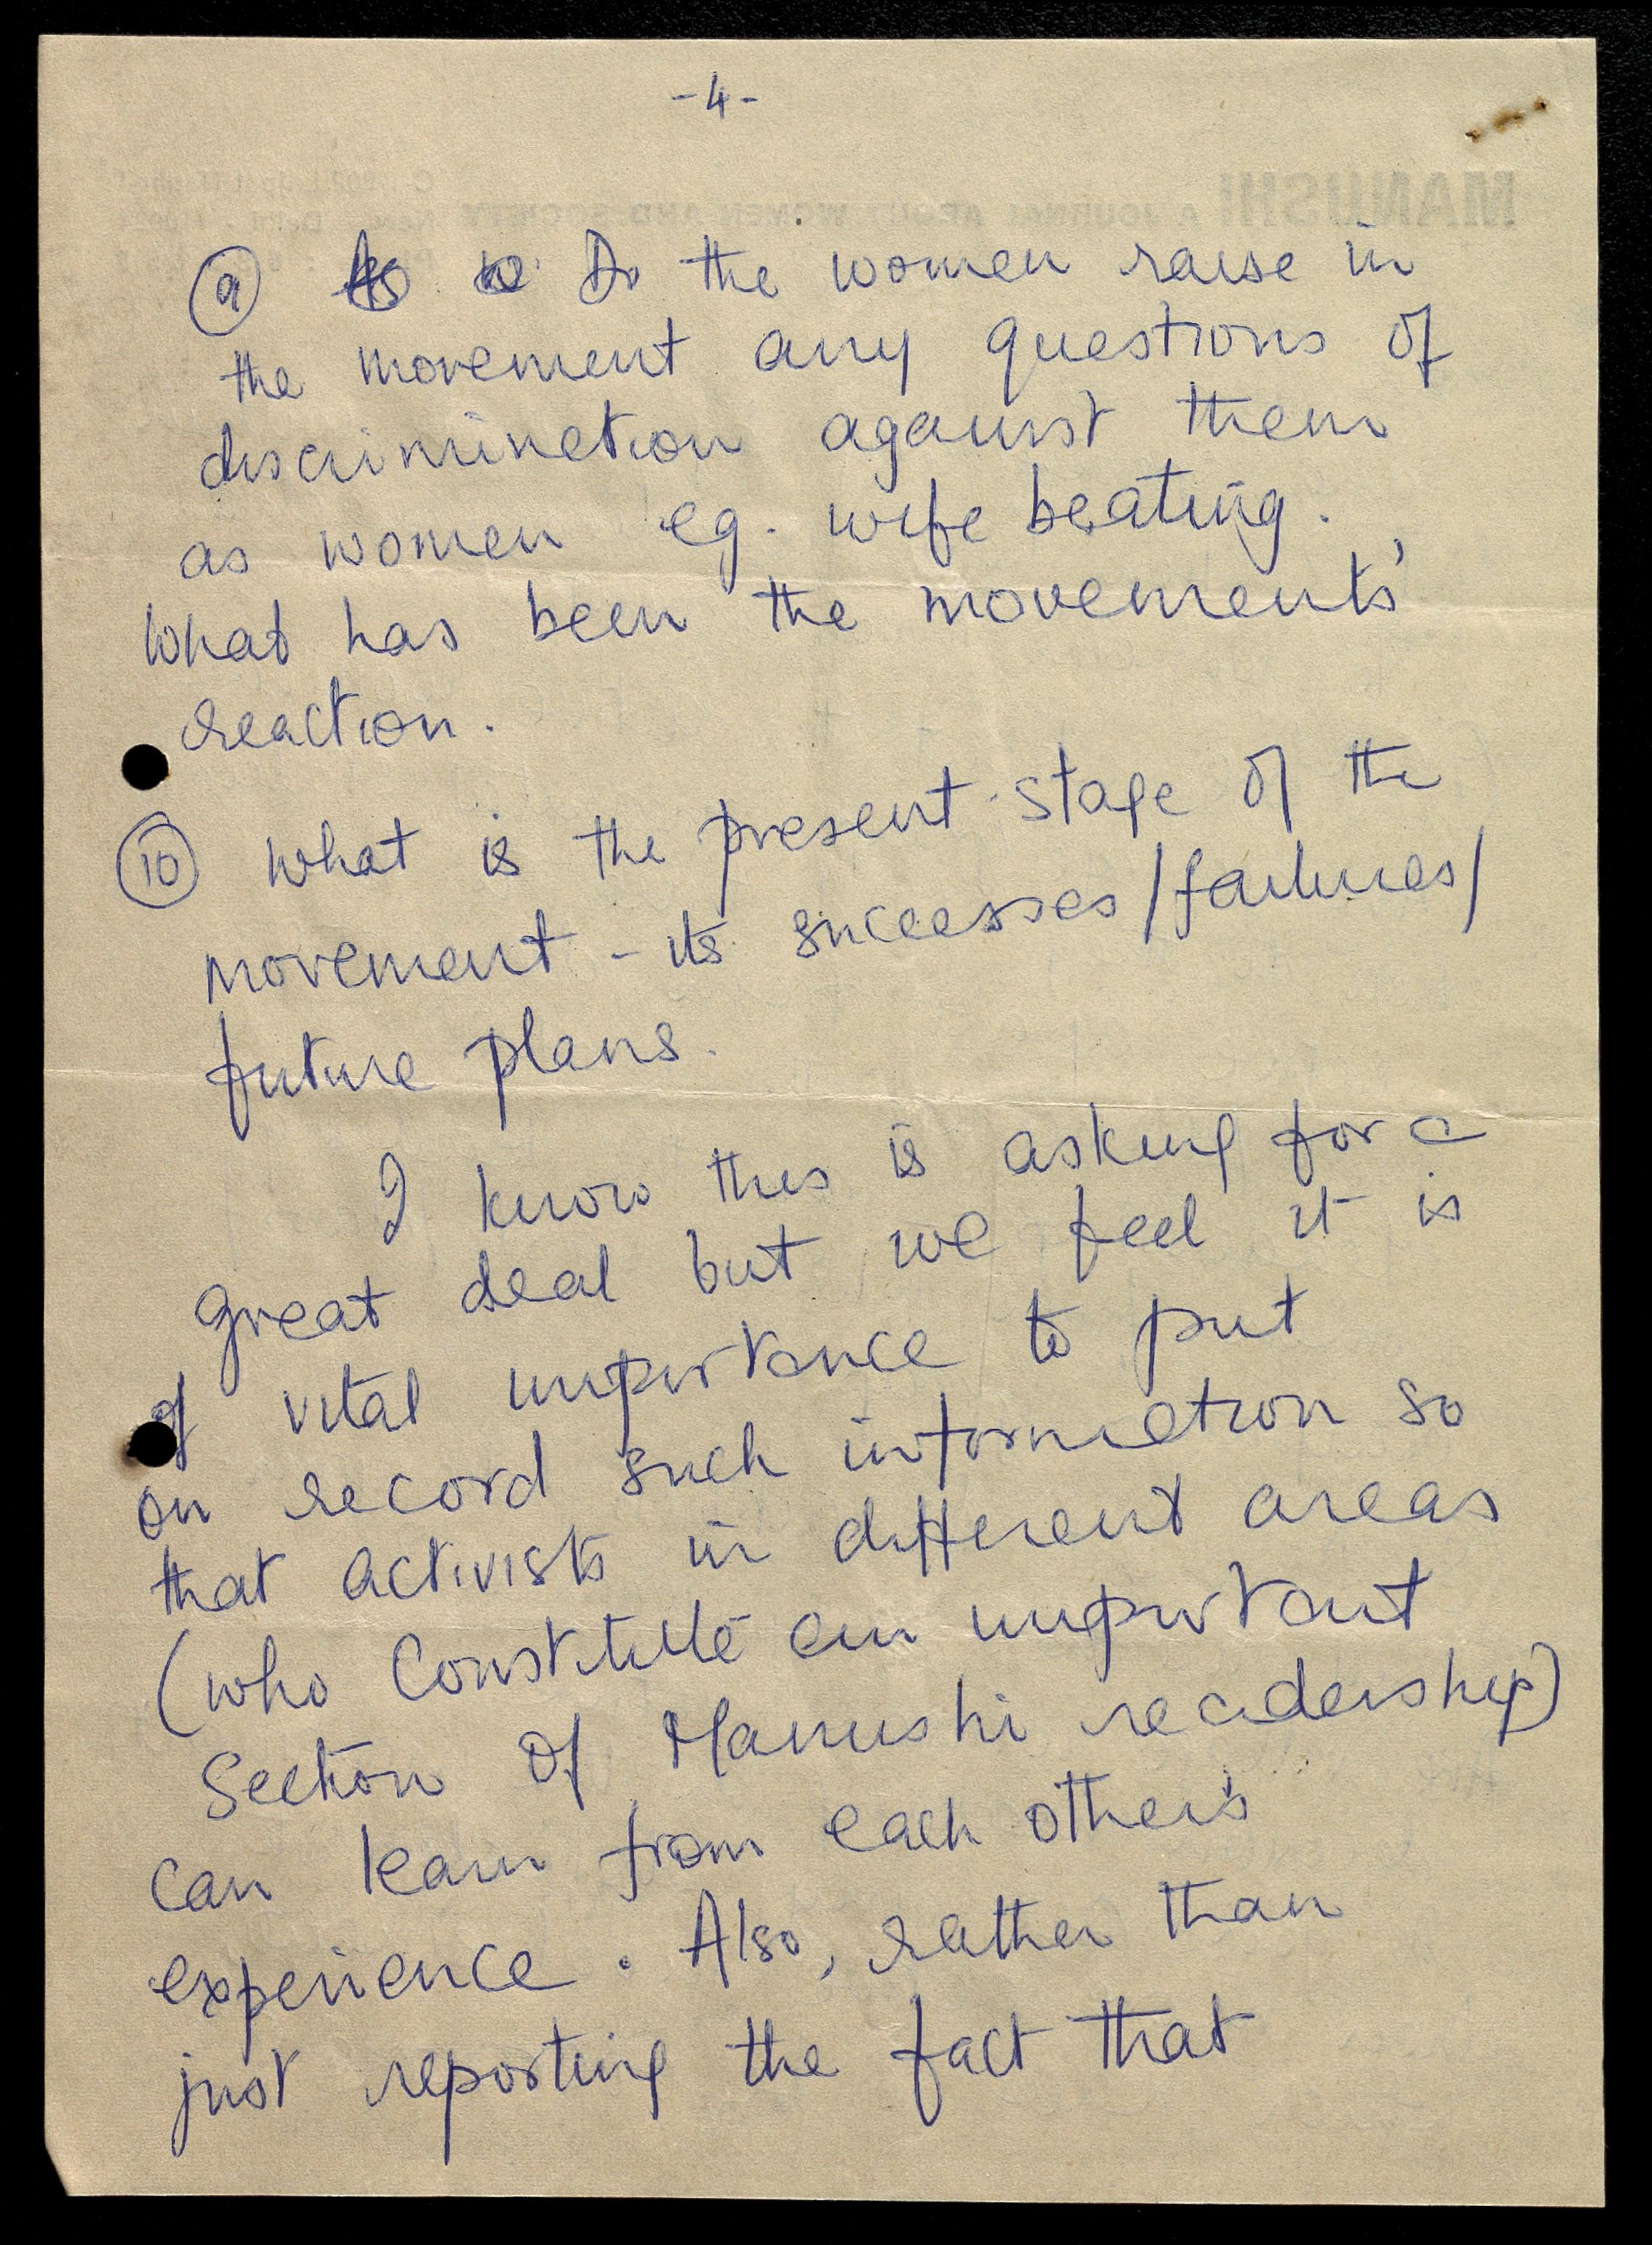 -4-
9 Do the women raise in
the movement any questions of
discrimination against them
as women eg. wife beating.
What has been the movements'
reaction.
10 What is the present stage of the
movement - its successes/failures/
future plans.
I know this is asking for a
great deal but we feel it is
of vital importance to put
on record such information so
that activists in different areas
(who constitute an important
Section of Manushi readership)
can learn from each other's
experience. Also, rather than
just reporting the fact that